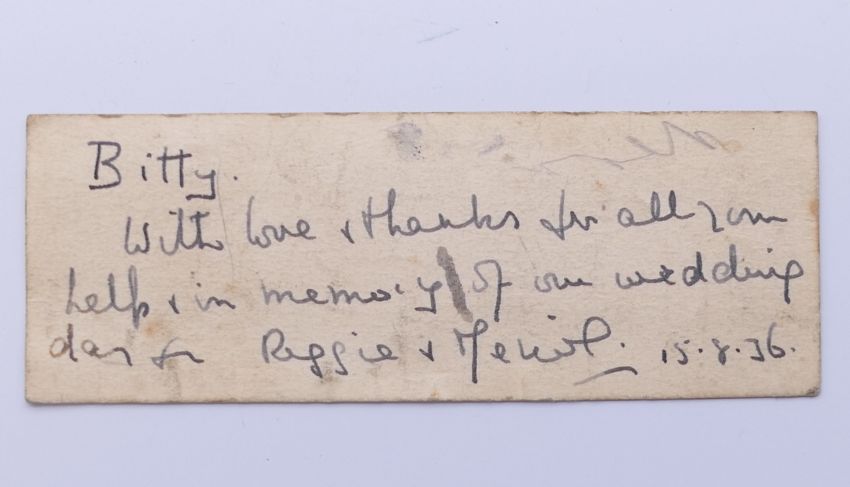 Bitty.
With love & thanks for all your
help & in memory of our wedding
day fr Reggie & Meriol. 15.8.36.